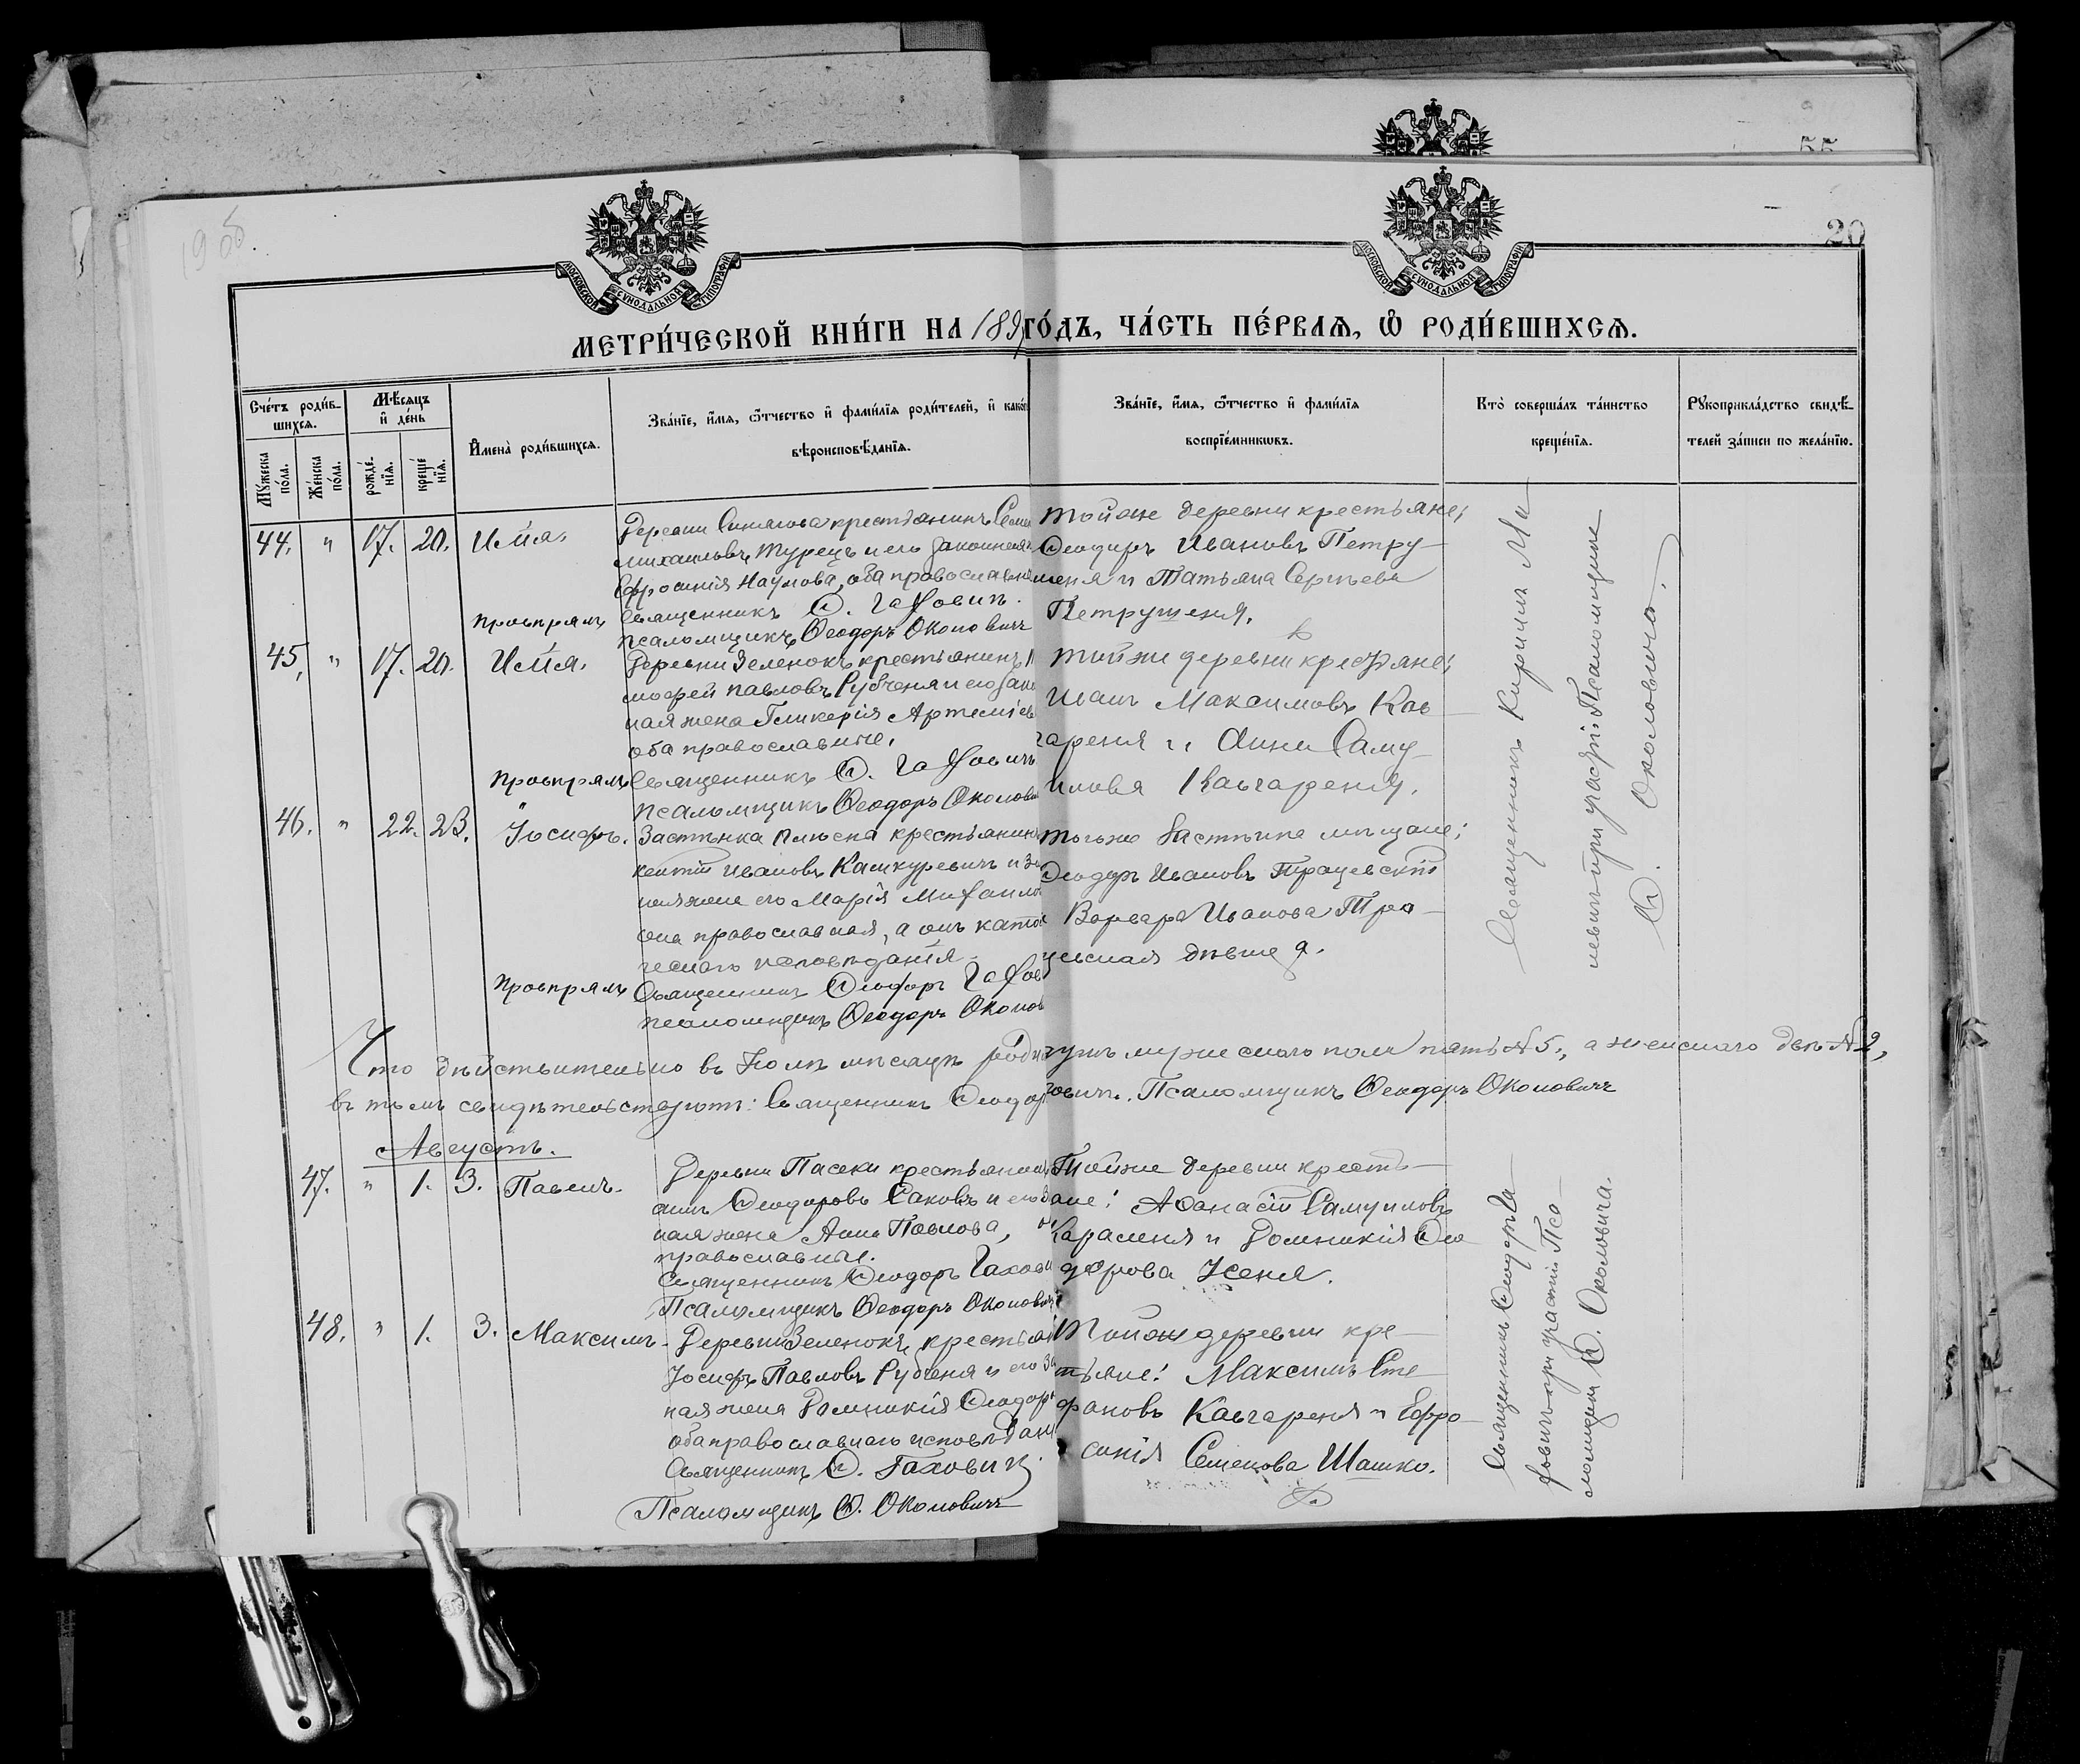 55
20
МОСКОВСКОЙ СѴНОДАЛЬНОЙ ТИПОГРАФІИ
МОСКОВСКОЙ СѴНОДАЛЬНОЙ ТИПОГРАФІИ
МЕТРИ́ЧЕСКОЙ КНИ́ГИ НА 189 ГО́ДЪ, ЧА́СТЬ ПЕ́РВАѦ, Ѿ РОДИ́ВШИХСѦ.
Сче́тъ роди́в-
шихсѧ.
Мѣ́сѧцъ
и҆ де́нь
Мꙋ́жеска
по́ла.
Же́нска
по́ла.
рожде́-
нїѧ.
креще́
нїѧ.
И҆мена̀ роди́вшихсѧ.
Зва́нїе, и҆́мѧ, ѻ҆́тчество и҆ фами́лїѧ роди́телей, и҆ како́г
вѣроисповѣ́данїѧ.
Зва́нїе, и҆́мѧ, ѻ҆́тчество и҆ фами́лїѧ
воспрїе́мникѡвъ.
Кто̀ соверша́лъ та́инство
креще́нїѧ.
Рꙋкоприкла́дство свидѣ́-
телей за́писи по жела́нїю.
44. " 17. 20. Илія.
Деревни крестьянинъ Семе
Михаиловъ Турецъ и его законная
Ефросинія Наумова, оба православн
Священникъ Ѳ. Гахович.
Псаломщикъ Ѳеодоръ Околович
Тойже деревни крестьяне;
Ѳеодоръ Ивановъ Петру-
шеня и Татьяна Сергѣева
Петрушеня.
45. " 17. 20. Илія.
Деревни Зеленокъ крестьянинъ
мофей Павловъ Рубченя и его зако
ная жена Гликерія Артеміев
оба православные.
Священникъ Ѳ. Гахович
Псаломщикъ Ѳеодоръ Околови
Тойже деревни крестьяне;
Иванъ Максимовъ Кав
гареня и Анна Саму
илова Кавгареня.
46. " 22. 23. Іосифъ.
Застѣнка крестьянин
Ивановъ Кашкуревичъ и за
ная жена его Марія Михаило
она православная, а онъ като
ческаго исповѣданія.
Священникъ Ѳеодоръ Гахов
Псаломщикъ Ѳеодоръ Околов
Тогоже Застѣнка мѣщане;
Ѳеодоръ Ивановъ Трацевскій
Варвара Ивановна Тра-
цевская дѣвица.
Священникъ Кирилъ Ми
невичъ при участіи Псаломщика
Ѳ. Околовича.
Что дѣйствительно въ Іюлѣ мѣсяцѣ роди мужескаго пола пять № 5, а женскаго двѣ № 2,
въ томъ свидѣтельствуютъ: Священникъ Ѳеодор Псаломщикъ Ѳеодоръ Околович
Августъ.
47. " 1. 3. Павелъ.
Деревни Пасеки крестьянин
Ѳеодоровъ Саковъ и его за
ная жена Анна Павлова,
православные.
Священникъ Ѳеодоръ Гахови
Псаломщикъ Ѳеодоръ Околович
Тойже деревни кресть-
яне: Аѳанасій Самуиловъ
Карасеня и Домникія Ѳео
дорова Усеня.
48. " 1. 3. Максимъ.
Деревни Зеленокъ, крестьян
Іосифъ Павловъ Рубченя и его за
ная жена Домникія Ѳеодор
оба православнаго исповѣдан
Священникъ Ѳ. Гахович.
Псаломщикъ Ѳ. Околович
Тойже деревни кре-
тьяне: Максимъ Сте
фановъ Кавгареня и Ефро-
синія Семенова Шашко.
Священникъ Ѳеодоръ Га
ховичъ при участіи Пса
ломщика Ѳ. Околовича.